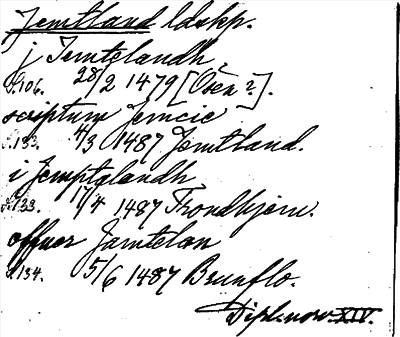 Jemtland ldskp.
j Jemtelandh
S.106. 28/2 1479 [Osen?].
scriptum Jemcie
S.133. 4/3 1487 Jemtland.
i Jemptalandh
S.133. 17/4 1487 Trondhjem.
offuer Jamtelan
S.134. 5/6 1487 Brunflo.
Dipl. norv. XIV.